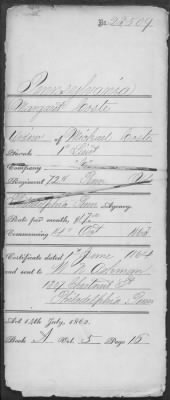 No 28509
Pennsylvania
Margaret
Widow of Michael
1" Lieut
Company
Regiment 72d Penn Vols
Philadelphia Penn Agency.
Rate per month, $17 00
Commencing 14" Oct 1863
Certificate dated 1" June 1864
and sent to
Chestnut St
Philadelphia Penn
Act 14th July, 1862.
Book A Vol. 5 Page 15